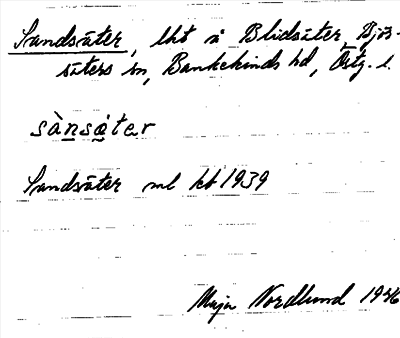 Sandsäter, lht å Blidsäter, Björ-
säters sn, Bankekinds hd, Östg. l.
sànsátər
Sandsäter ml kb 1939
Maja Nordlund 1946